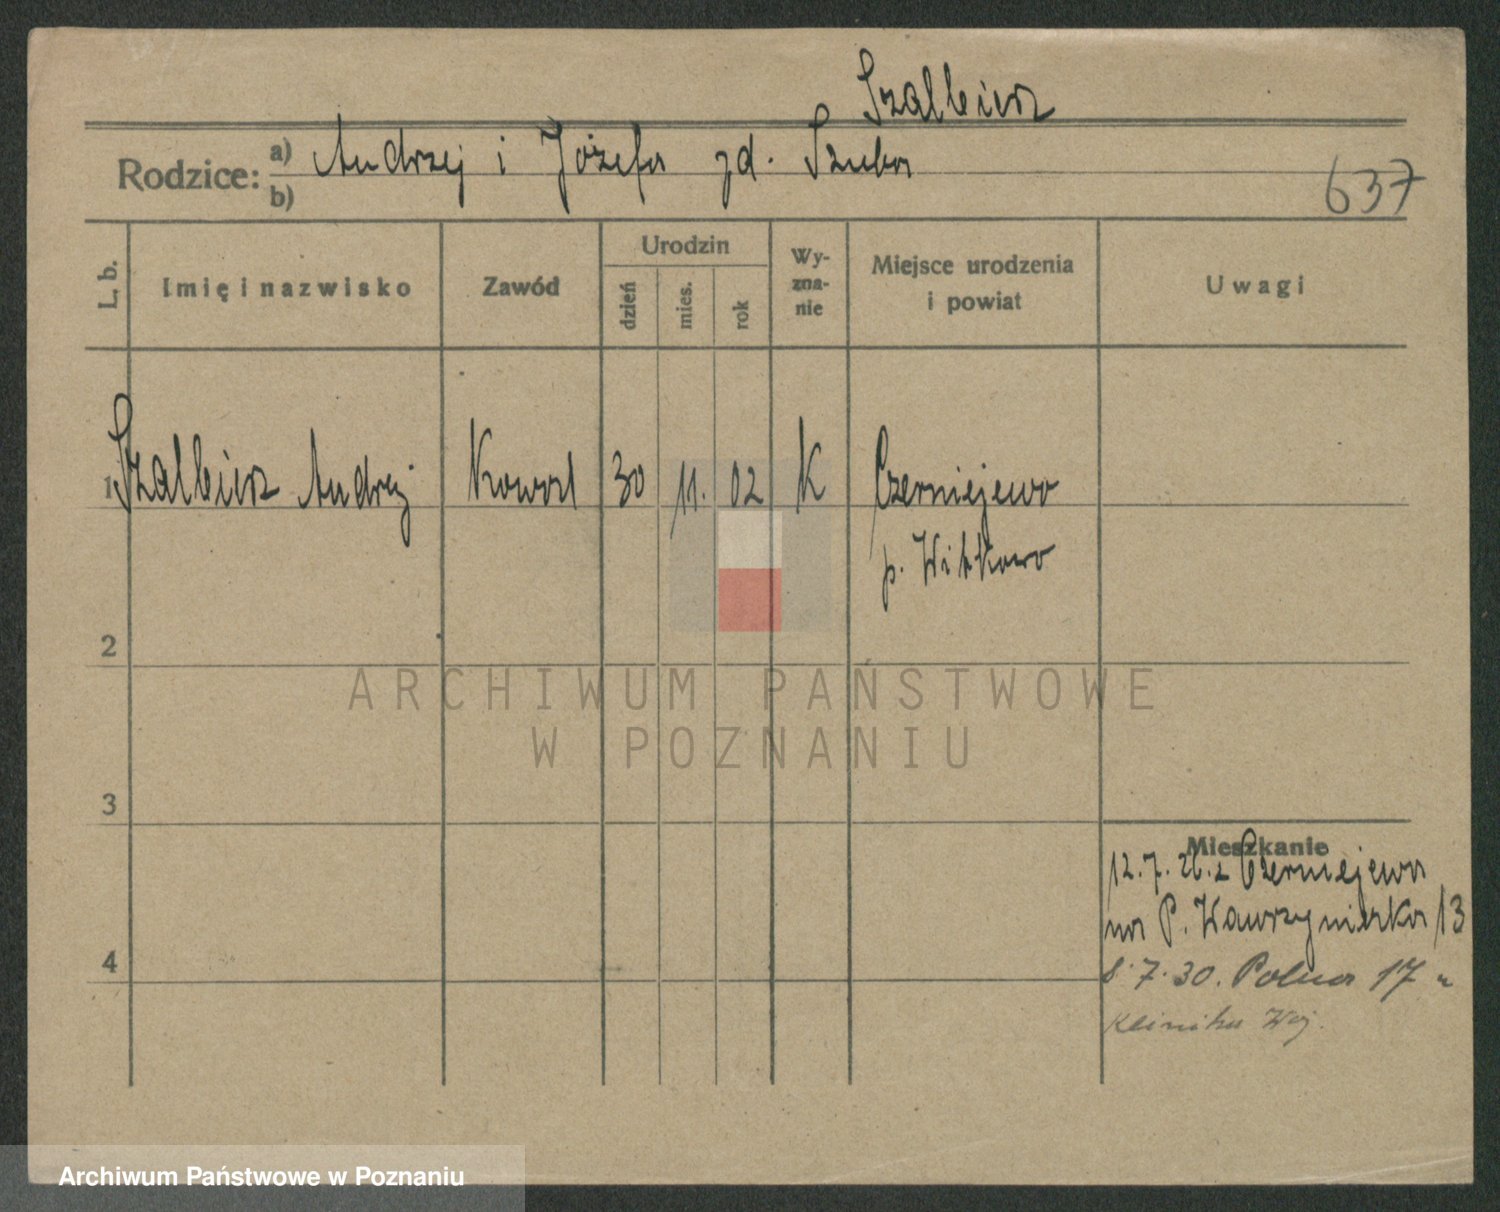 Szalbierz
Rodzice: a) Andrzej i Józefa zd. Szuba
b)
637
L. b.
Imię i nazwisko
Zawód
Urodzin
dzień
mies.
rok
Wy-
zna-
nie
Miejsce urodzenia
i powiat
Uwagi
1 Szalbierz Andrzej Kowal 30 11. 02 K Czerniejewo
p. Witkowo
2
ARCHIWUM PAŃSTWOWE
W POZNANIU
3
Mieszkanie
12.7.26. z Czerniejewa
na P. Wawrzyniaka 13
4
8.7.30. Polna 17
Klinika Woj.
Archiwum Państwowe w Poznaniu